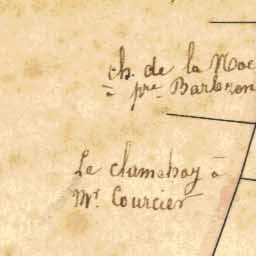 ch. de la Noe
à pre Barberon
Le clamehoy à
Mr. Courcier